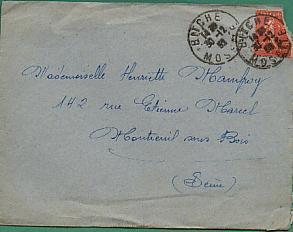 BITCHE
MOSELLE
BITCHE
MOSELLE
Mademoiselle Henriette Mamfroy
142 rue Etienne Marcel
Montreuil sous Bois
(Seine)